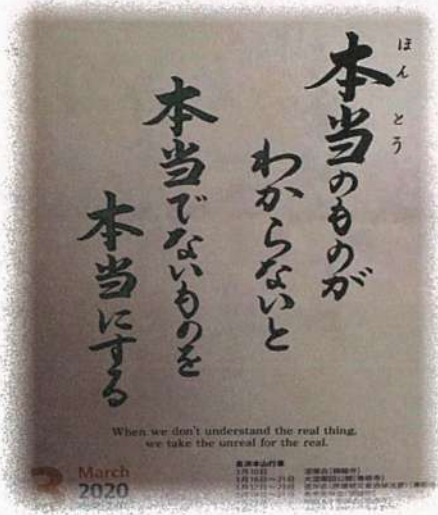 ほんとう
本当のものが
わからないと
本当でないものを
本当にする
When we don't understand the real thing,
we take the unreal for the real.
3 March
2020
東本山行事